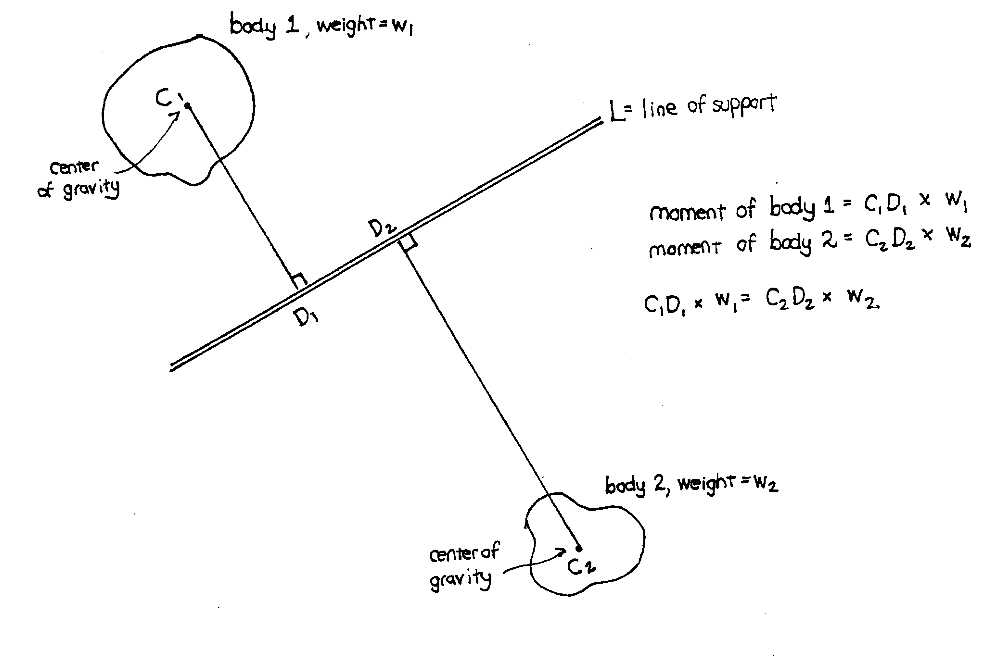 body 1, weight = w₁
C₁
center
of gravity
L = line of support
D₂
D₁
moment of body 1 = C₁D₁ × W₁
moment of body 2 = C₂D₂ × W₂
C₁D₁ × W₁ = C₂D₂ × W₂.
body 2, weight = w₂
center of
gravity
C₂